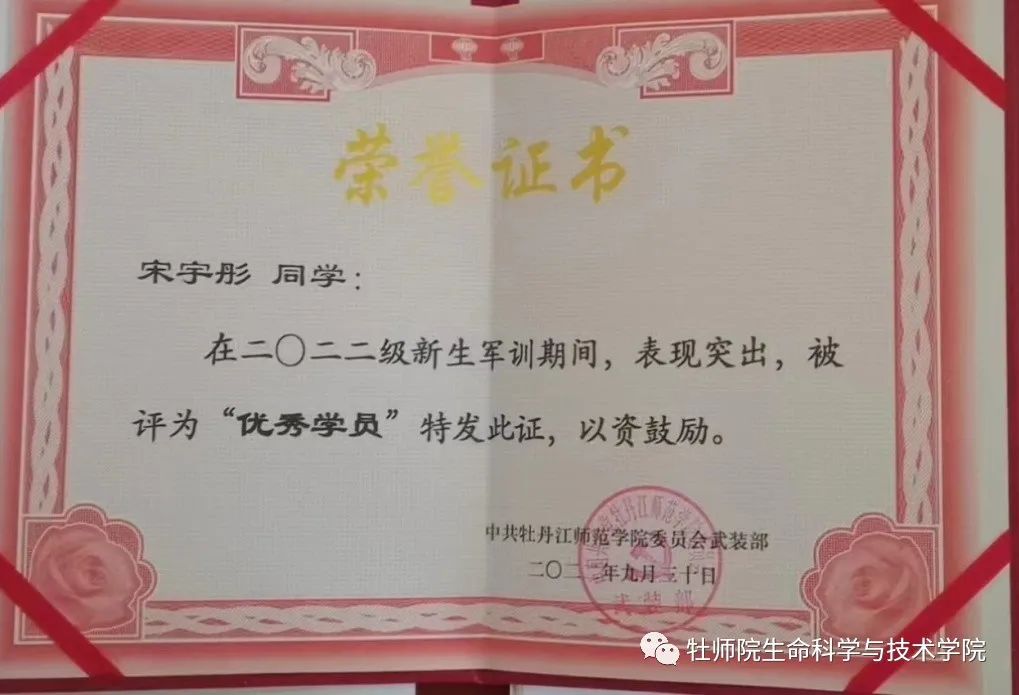 荣誉证书
宋宇彤 同学：
在二〇二二级新生军训期间，表现突出，被
评为“优秀学员”特发此证，以资鼓励。
中共牡丹江师范学院委员会武装部
二〇二 年九月三十日
武装部
牡师院生命科学与技术学院